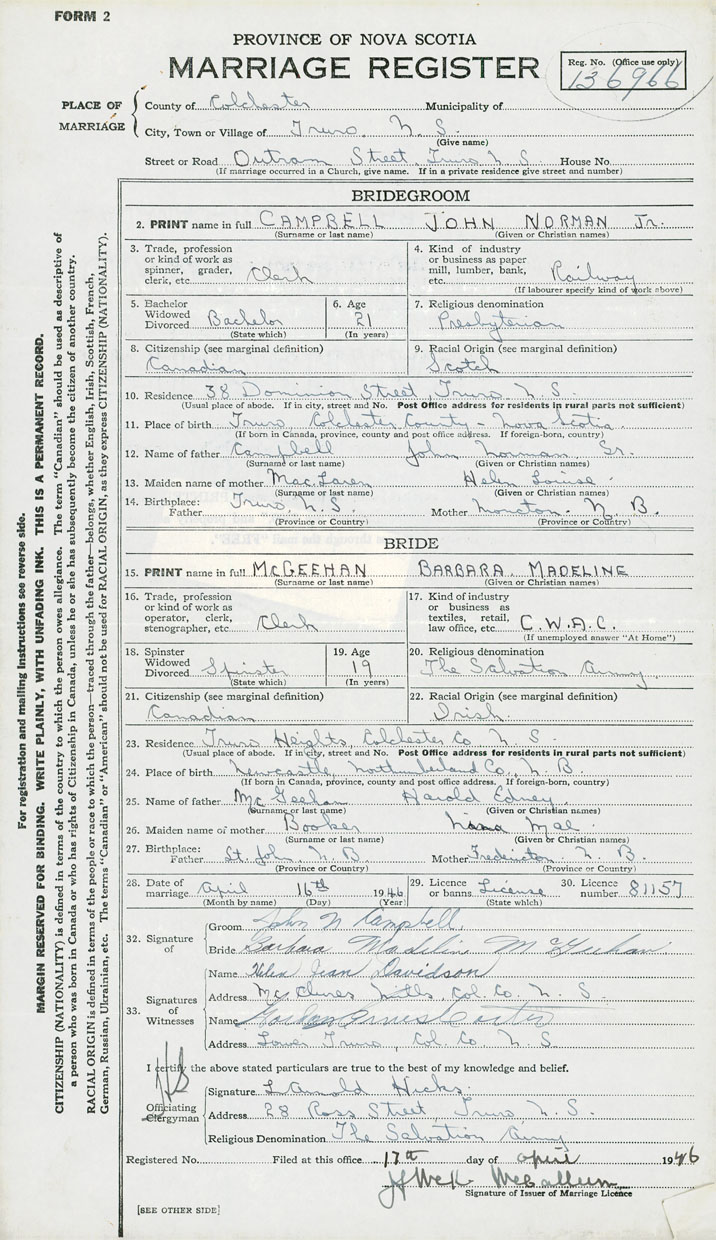 FORM 2
PROVINCE OF NOVA SCOTIA
MARRIAGE REGISTER
Reg. No. (Office use only)
136966
PLACE OF MARRIAGE
County of Colchester Municipality of
City, Town or Village of Truro, N. S.
(Give name)
Street or Road Outram Street, Truro N. S. House No.
(If marriage occurred in a Church, give name. If in a private residence give street and number)
BRIDEGROOM
2. PRINT name in full CAMPBELL JOHN NORMAN Jr.
(Surname or last name) (Given or Christian names)
3. Trade, profession or kind of work as spinner, grader, clerk, etc. Clerk
4. Kind of industry or business as paper mill, lumber, bank, etc. Railway
(If labourer specify kind of work above)
5. Bachelor Widowed Divorced Bachelor
(State which)
6. Age 21
(In years)
7. Religious denomination
Presbyterian
8. Citizenship (see marginal definition)
Canadian
9. Racial Origin (see marginal definition)
Scotch
10. Residence 38 Dominion Street, Truro N. S.
(Usual place of abode. If in city, street and No. Post Office address for residents in rural parts not sufficient)
11. Place of birth Truro Colchester County - Nova Scotia
(If born in Canada, province, county and post office address. If foreign-born, country)
12. Name of father Campbell John Norman Sr.
(Surname or last name) (Given or Christian names)
13. Maiden name of mother MacLaren Helen Louise
(Surname or last name) (Given or Christian names)
14. Birthplace: Father Truro, N. S. Mother Moncton - N. B.
(Province or Country) (Province or Country)
BRIDE
15. PRINT name in full McGEEHAN BARBARA MADELINE
(Surname or last name) (Given or Christian names)
16. Trade, profession or kind of work as operator, clerk, stenographer, etc. Clerk
17. Kind of industry or business as textiles, retail, law office, etc. C.W.A.C.
(If unemployed answer "At Home")
18. Spinster Widowed Divorced Spinster
(State which)
19. Age 19
(In years)
20. Religious denomination
The Salvation Army
21. Citizenship (see marginal definition)
Canadian
22. Racial Origin (see marginal definition)
Irish
23. Residence Truro Heights, Colchester Co N. S.
(Usual place of abode. If in city, street and No. Post Office address for residents in rural parts not sufficient)
24. Place of birth Newcastle, Northumberland Co., N. B.
(If born in Canada, province, county and post office address. If foreign-born, country)
25. Name of father McGeehan Harold Edney
(Surname or last name) (Given or Christian names)
26. Maiden name of mother Booker Nana Mae
(Surname or last name) (Given or Christian names)
27. Birthplace: Father St. John, N. B. Mother Fredericton N. B.
(Province or Country) (Province or Country)
28. Date of marriage April 16th 1946
(Month by name) (Day) (Year)
29. Licence or banns License
(State which)
30. Licence number 81157
32. Signature of
Groom John N Campbell
Bride Barbara Madelin McGeehan
33. Signatures of Witnesses
Name Helen Jean Davidson
Address McClures Mills, Col. Co. N. S.
Name
Address Lower Truro, Col. Co. N. S.
I certify the above stated particulars are true to the best of my knowledge and belief.
Officiating Clergyman
Signature L Arnold Hicks
Address 28 Ross Street, Truro N. S.
Religious Denomination The Salvation Army
Registered No. Filed at this office 17th day of April 1946
McCallum
Signature of Issuer of Marriage Licence
[SEE OTHER SIDE]
For registration and mailing instructions see reverse side.
MARGIN RESERVED FOR BINDING. WRITE PLAINLY, WITH UNFADING INK. THIS IS A PERMANENT RECORD.
CITIZENSHIP (NATIONALITY) is defined in terms of the country to which the person owes allegiance. The term "Canadian" should be used as descriptive of
a person who was born in Canada or who has rights of Citizenship in Canada, unless he or she has subsequently become the citizen of another country.
RACIAL ORIGIN is defined in terms of the people or race to which the person—traced through the father—belongs, whether English, Irish, Scottish, French,
German, Russian, Ukrainian, etc. The terms "Canadian" or "American" should not be used for RACIAL ORIGIN, as they express CITIZENSHIP (NATIONALITY).